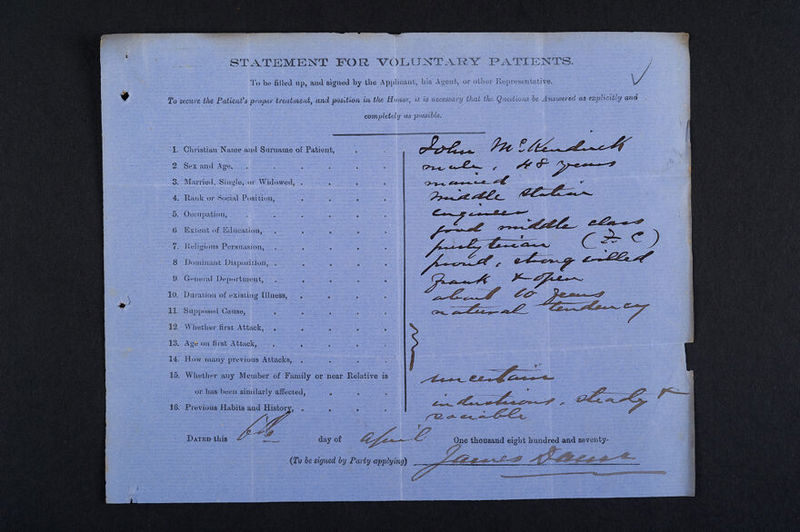 STATEMENT FOR VOLUNTARY PATIENTS.
To be filled up, and signed by the Applicant, his Agent, or other Representative.
To secure the Patient's proper treatment, and position in the House, it is necessary that the Questions be Answered as explicitly and
completely as possible.
1. Christian Name and Surname of Patient, John McKendrick
2. Sex and Age, male, 48 years
3. Married, Single, or Widowed, married
4. Rank or Social Position, middle station
5. Occupation, engineer
6 Extent of Education, good middle class
7. Religious Persuasion, presbyterian (F. C)
8 Dominant Disposition, proud, strong willed
9. General Deportment, frank & open
10. Duration of existing Illness, about 10 years
11. Supposed Cause, natural tendency
12. Whether first Attack,
13. Age on first Attack,
14. How many previous Attacks,
15. Whether any Member of Family or near Relative is
or has been similarly affected, uncertain
16. Previous Habits and History, industrious, steady &
sociable
DATED this 6th day of April One thousand eight hundred and seventy-
(To be signed by Party applying) James